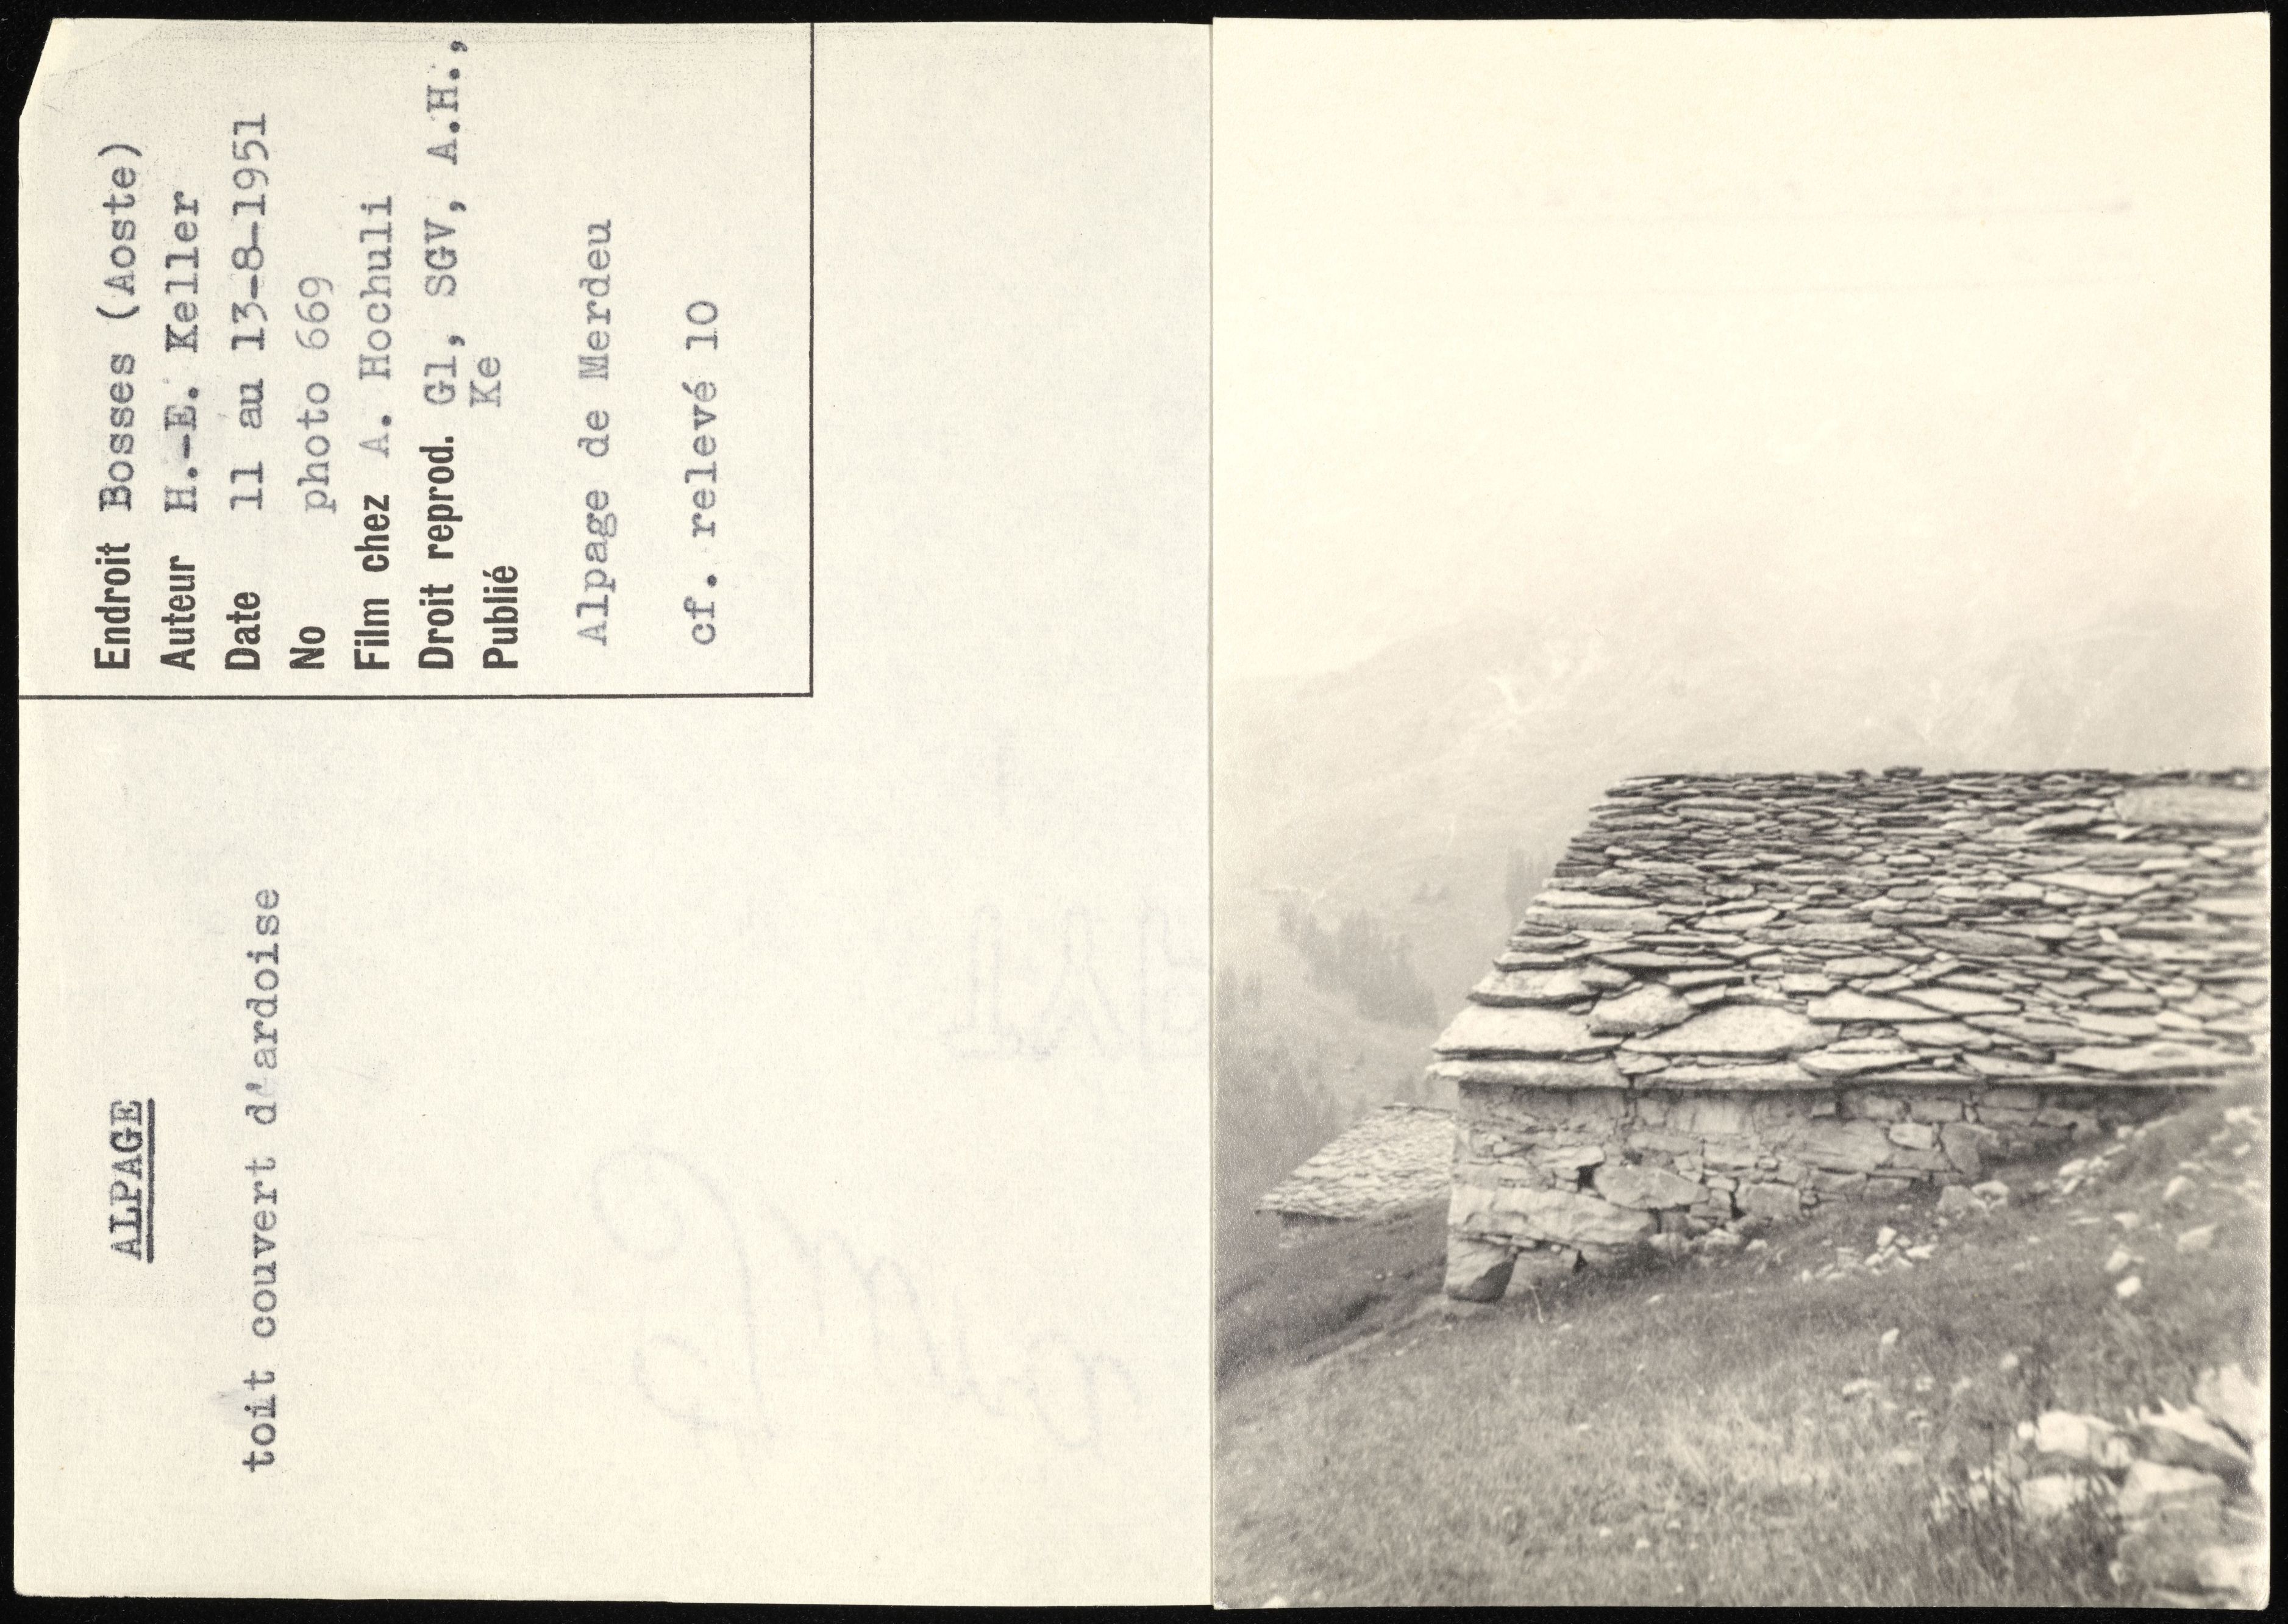 ALPAGE
toit couvert d'ardoise
Endroit Bosses (Aoste)
Auteur H.-E. Keller
Date 11 au 13-8-1951
No photo 669
Film chez A. Hochuli
Droit reprod. Gl, SGV, A.H.,
Ke
Publié
Alpage de Merdeu
cf. relevé 10